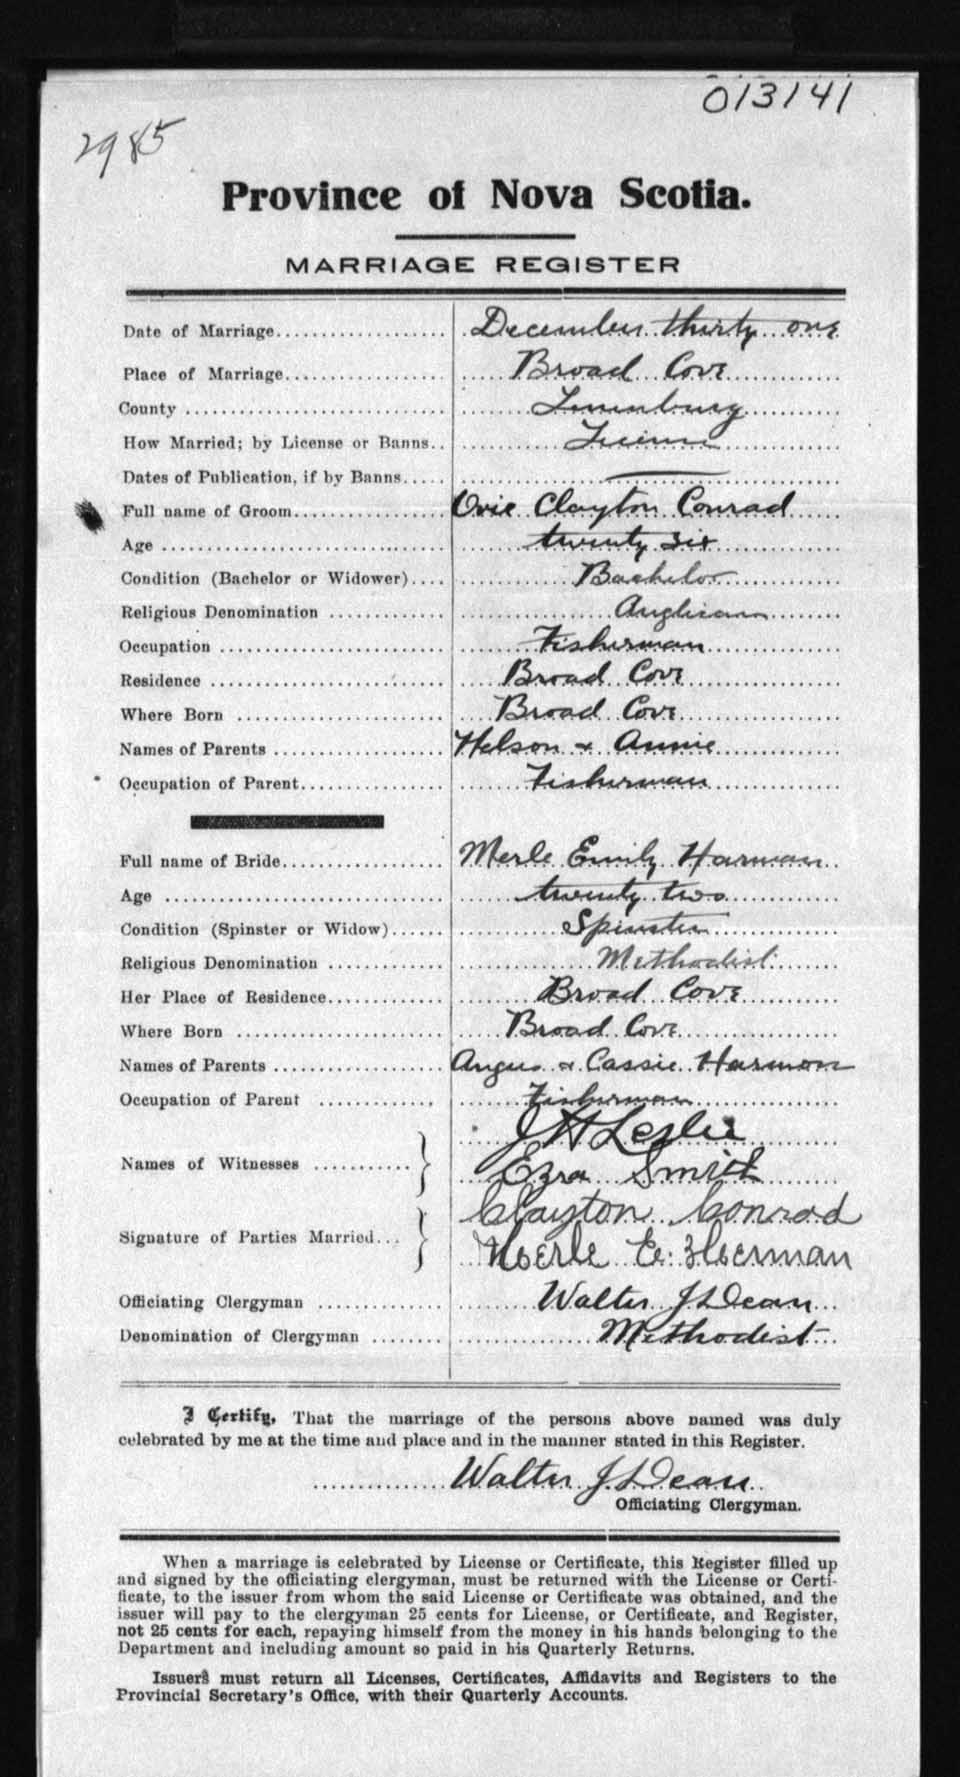 013141
2985
Province of Nova Scotia.
MARRIAGE REGISTER
Date of Marriage December thirty one
Place of Marriage Broad Cove
County Lunenburg
How Married; by License or Banns License
Dates of Publication, if by Banns
Full name of Groom Ovie Clayton Conrad
Age twenty six
Condition (Bachelor or Widower) Bachelor
Religious Denomination Anglican
Occupation Fisherman
Residence Broad Cove
Where Born Broad Cove
Names of Parents Nelson & Annie
Occupation of Parent Fisherman
Full name of Bride Merle Emily Harman
Age twenty two
Condition (Spinster or Widow) Spinster
Religious Denomination Methodist
Her Place of Residence Broad Cove
Where Born Broad Cove
Names of Parents Angus & Cassie Harmon
Occupation of Parent Fisherman
Names of Witnesses J H Leslie
Ezra Smith
Signature of Parties Married Clayton Conrad
Merle E. Herman
Officiating Clergyman Walter J Dean
Denomination of Clergyman Methodist
I Certify, That the marriage of the persons above named was duly
celebrated by me at the time and place and in the manner stated in this Register.
Walter J Dean
Officiating Clergyman.
When a marriage is celebrated by License or Certificate, this Register filled up
and signed by the officiating clergyman, must be returned with the License or Certi-
ficate, to the issuer from whom the said License or Certificate was obtained, and the
issuer will pay to the clergyman 25 cents for License, or Certificate, and Register,
not 25 cents for each, repaying himself from the money in his hands belonging to the
Department and including amount so paid in his Quarterly Returns.
Issuers must return all Licenses, Certificates, Affidavits and Registers to the
Provincial Secretary's Office, with their Quarterly Accounts.